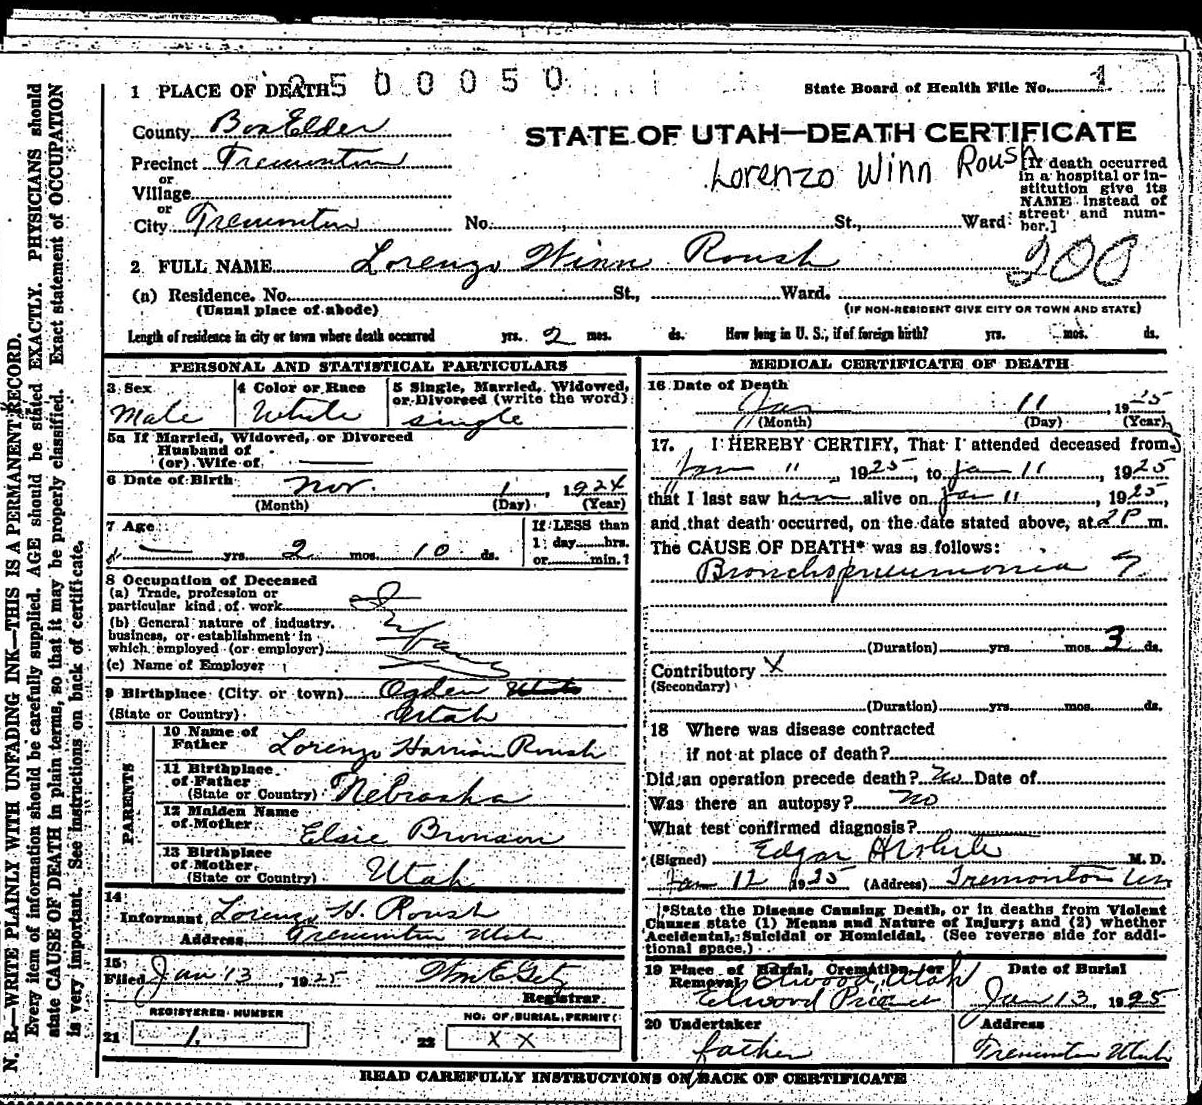 N. B.—WRITE PLAINLY WITH UNFADING INK—THIS IS A PERMANENT RECORD.
Every item of information should be carefully supplied. AGE should be stated EXACTLY. PHYSICIANS should
state CAUSE OF DEATH in plain terms, so that it may be properly classified. Exact statement of OCCUPATION
is very important. See instructions on back of certificate.
1 PLACE OF DEATH 2500050
State Board of Health File No. 1
County Box Elder
STATE OF UTAH—DEATH CERTIFICATE
Precinct Tremonton
Lorenzo Winn Roush
or
Village
or
City Tremonton No. , St., Ward
[If death occurred
in a hospital or in-
stitution give its
NAME instead of
street and num-
ber.]
2 FULL NAME Lorenzo Winn Roush
200
(a) Residence. No. St., Ward.
(Usual place of abode) (IF NON-RESIDENT GIVE CITY OR TOWN AND STATE)
Length of residence in city or town where death occurred yrs. 2 mos. ds. How long in U. S., if of foreign birth? yrs. mos. ds.
PERSONAL AND STATISTICAL PARTICULARS
3 Sex
Male
4 Color or Race
White
5 Single, Married, Widowed,
or Divorced (write the word)
single
5a If Married, Widowed, or Divorced
Husband of
(or) Wife of
6 Date of Birth Nov. 1, 1924
(Month) (Day) (Year)
7 Age
— yrs. 2 mos. 10 ds.
If LESS than
1 day hrs.
or min.?
8 Occupation of Deceased
(a) Trade, profession or
particular kind of work
(b) General nature of industry,
business, or establishment in
which employed (or employer)
(c) Name of Employer
9 Birthplace (City or town) Ogden
(State or Country) Utah
PARENTS
10 Name of
Father Lorenzo Harrison Roush
11 Birthplace
of Father
(State or Country) Nebraska
12 Maiden Name
of Mother Elsie Bronson
13 Birthplace
of Mother
(State or Country) Utah
14
Informant Lorenzo H. Roush
Address Tremonton Utah
15
Filed Jan 13, 1925 Wm E Getz
Registrar
REGISTERED NUMBER
21 1.
NO. OF BURIAL PERMIT
22 X X
MEDICAL CERTIFICATE OF DEATH
16 Date of Death
Jan 11, 1925
(Month) (Day) (Year)
17. I HEREBY CERTIFY, That I attended deceased from
Jan 11, 1925, to Jan 11 1925
that I last saw him alive on Jan 11, 1925,
and that death occurred, on the date stated above, at 2 P m.
The CAUSE OF DEATH* was as follows:
Bronchopneumonia
(Duration) yrs. mos. 3 ds.
Contributory X
(Secondary)
(Duration) yrs. mos. ds.
18 Where was disease contracted
if not at place of death?
Did an operation precede death? No Date of
Was there an autopsy? No
What test confirmed diagnosis?
(Signed) Edgar M.D.
Jan 12 1925 (Address) Tremonton
*State the Disease Causing Death, or in deaths from Violent
Causes state (1) Means and Nature of Injury; and (2) whether
Accidental, Suicidal or Homicidal. (See reverse side for addi-
tional space.)
19 Place of Burial, Cremation, or
Removal Elwood, Utah
Elwood Precinct
Date of Burial
Jan 13, 1925
20 Undertaker
father
Address
Tremonton Utah
READ CAREFULLY INSTRUCTIONS ON BACK OF CERTIFICATE